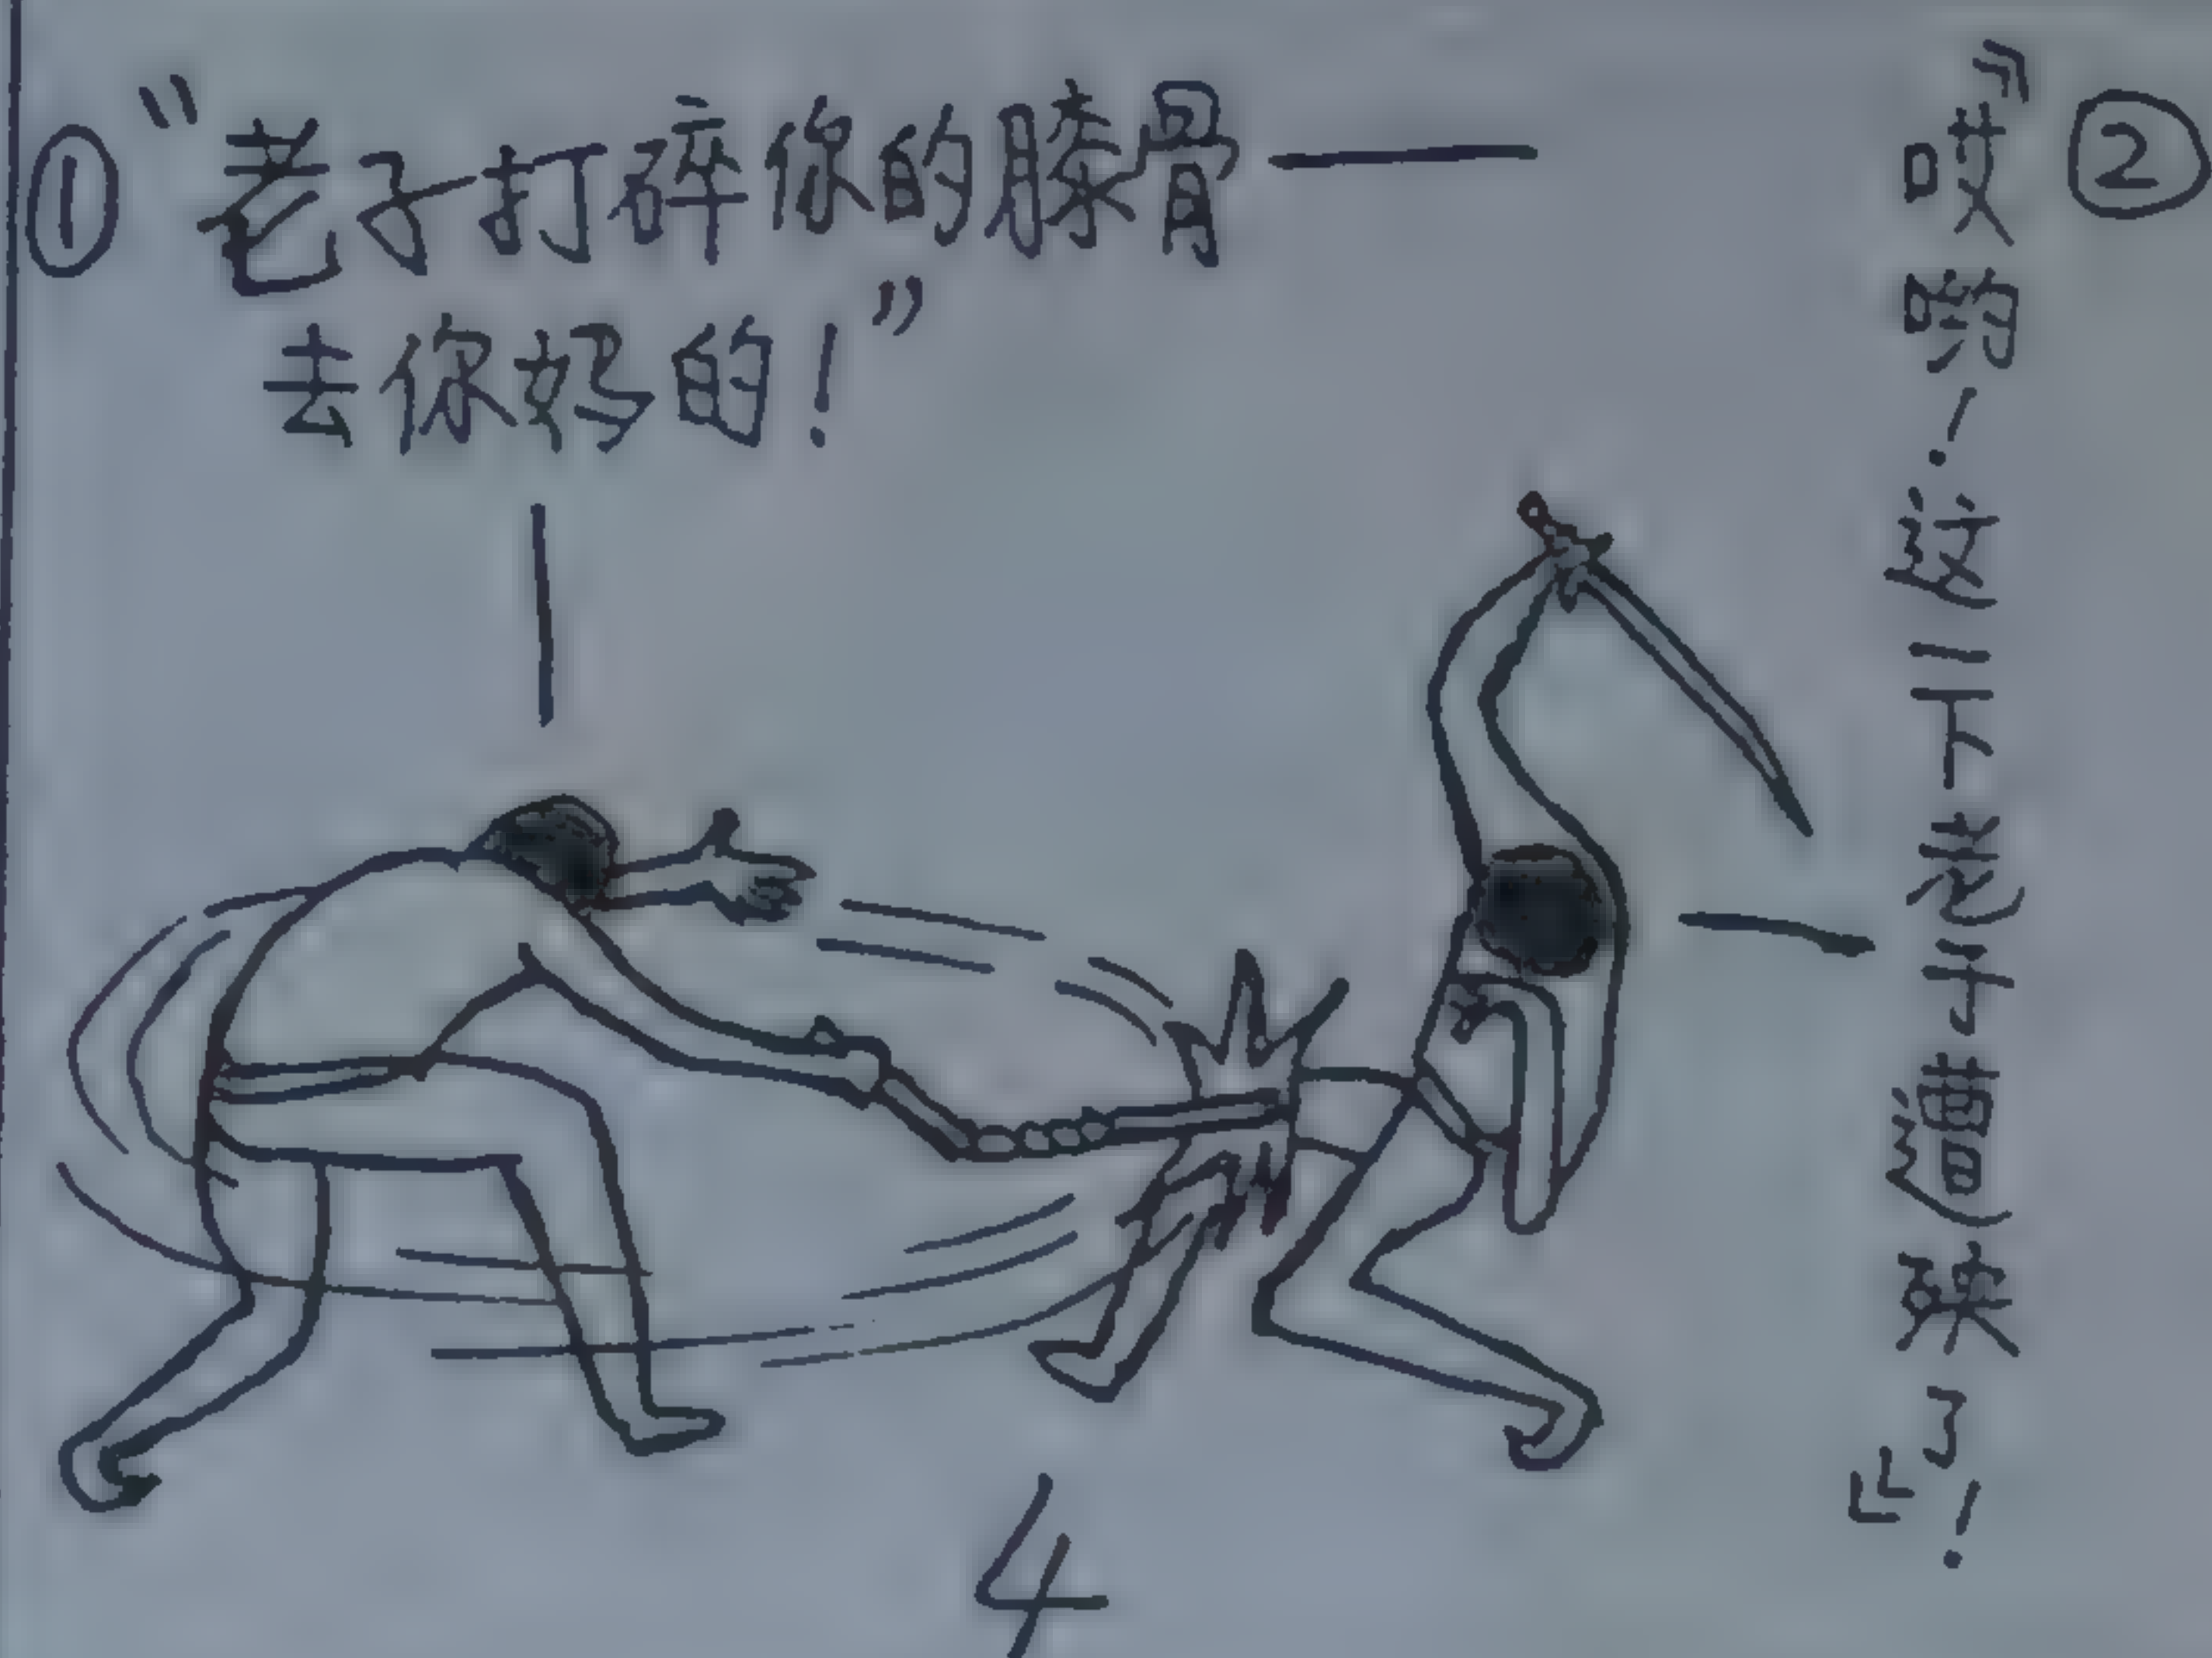 ① “老子打碎你的膝骨——
去你妈的！”
② “哎哟！这一下老子遭殃了！”
4